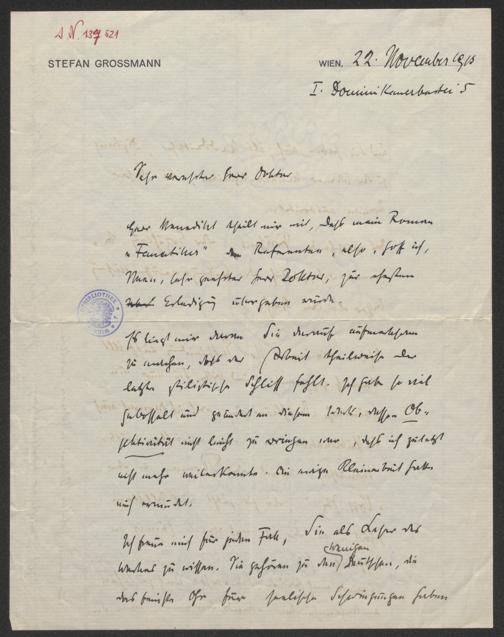 I. N. 139.621
STEFAN GROSSMANN
WIEN, 22. November 1913
I. Dominikanerbastei 5
Sehr verehrter Herr Doktor
Herr Benedikt theilt mir mit, daß mein Roman
"Fanatiker" dem Referenten, also, hoff ich,
Ihnen, sehr geehrter Herr Doktor, zur
Erledigung übergeben wurde
Es liegt mir daran Sie darauf aufmerksam
zu machen, daß der Arbeit theilweise der
letzte stilistische Schliff fehlt. Ich habe so viel
und geändert an diesem dessen Ob-
jektivität nicht leicht zu erringen war, daß ich zuletzt
nicht mehr weiterkonnte. Die ewige Kleinarbeit hatte
mich ermüdet.
Ich freue mich für jeden Fall, Sie als Leser des
Werkes zu wissen. Sie gehören zu den wenigen Deutschen, die
das feinste Ohr für seelische Schwingungen haben